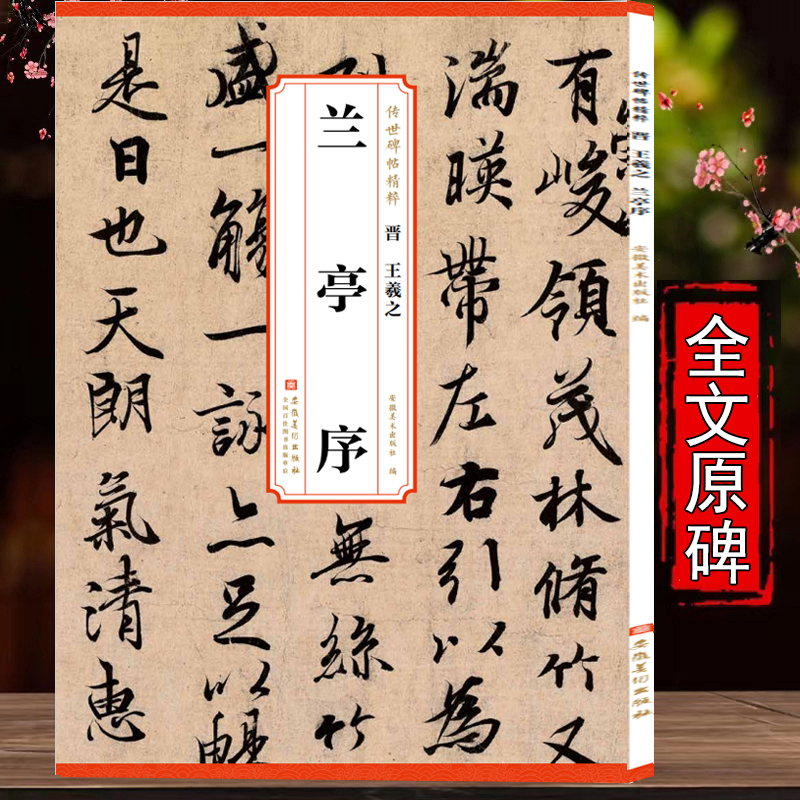 有峻領茂林脩竹又
湍暎帶左右引以為
無絲竹
盛一觴一詠亦足以暢
是日也天朗氣清惠
传世碑帖精粹
晋 王羲之
安徽美术出版社 编
兰亭序
安徽美术出版社
全国百佳图书出版单位
传世碑帖精粹 晋 王羲之 兰亭序 安徽美术出版社 编
安徽美术出版社
全文原碑